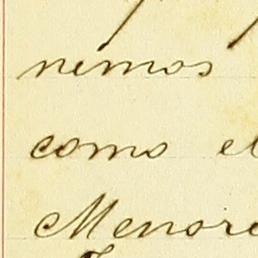 nemos
como el
Menore